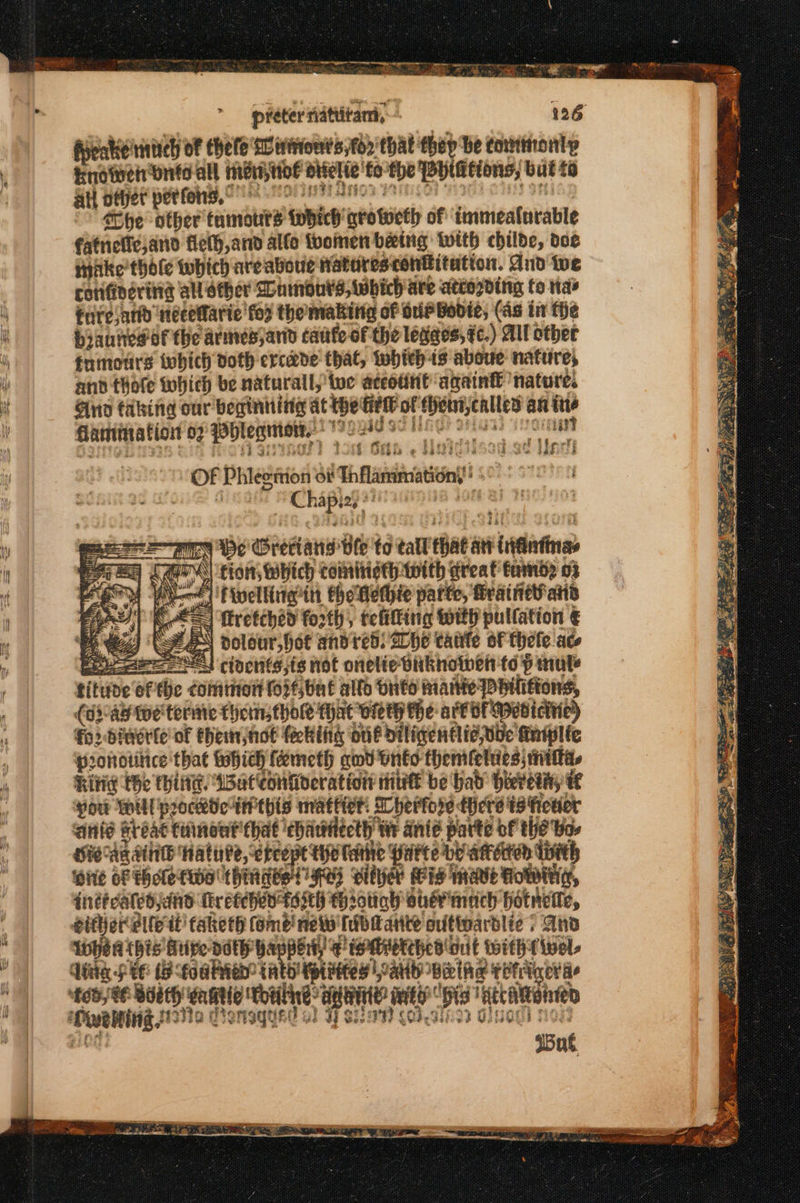 preter naturam, 126
speake much of these Tumours, for that they be commonly
knowen vnto all men, not onelie to the Phisitions, but to
all other persons.
The other tumours which groweth of immeasurable
fatnesse, and flesh, and also women béeing with childe, doe
make those which are aboue natures constitution. And we
considering all other Tumours, which are according to na-
ture, and necessarie for the making of our bodie, (as in the
braunes of the armes, and caufe of the legges, &c.) All other
tumours which doth excéede that, which is aboue nature,
and those which be naturall, we account against nature.
And taking our beginning at the first of them, called an in-
flammation or Phlegmon.
Of Phlegmon or Inflammation,
Chap. 2,
The Grecians vse to call that an inflamma-
tion, which commeth with great tumor or
swelling in the fleshie parte, strained and
stretched forth, resisting with pulsation &
dolour, hot and red. The cause of these ac-
cidents, is not onelie vnknowen to þ mul-
titude of the common sort, but also vnto manie Phisitions,
(or as we terme them, those that vseth the art of Medicine)
for diuerse of them, not séeking out diligentlie, doe simplie
pronounce that which séemeth good vnto themselues, mista-
king the thing. But consideration must be had héerein, if
you will procéede in this matter. Therfore there is neuer
anie great tumour that chaunceth in anie parte of the bo-
die against nature, except the same parte be affected with
one of these two thinges: For either it is made flowing,
increased, and stretched forth through ouer much hotnesse,
either else it taketh some new substance outwardlie. And
when this sure doth happen, & is stretched out with swel-
ling, if it is tourned into spirites, and béeing refrigera-
ted, it doeth easilie tourne againe into his accustomed
But